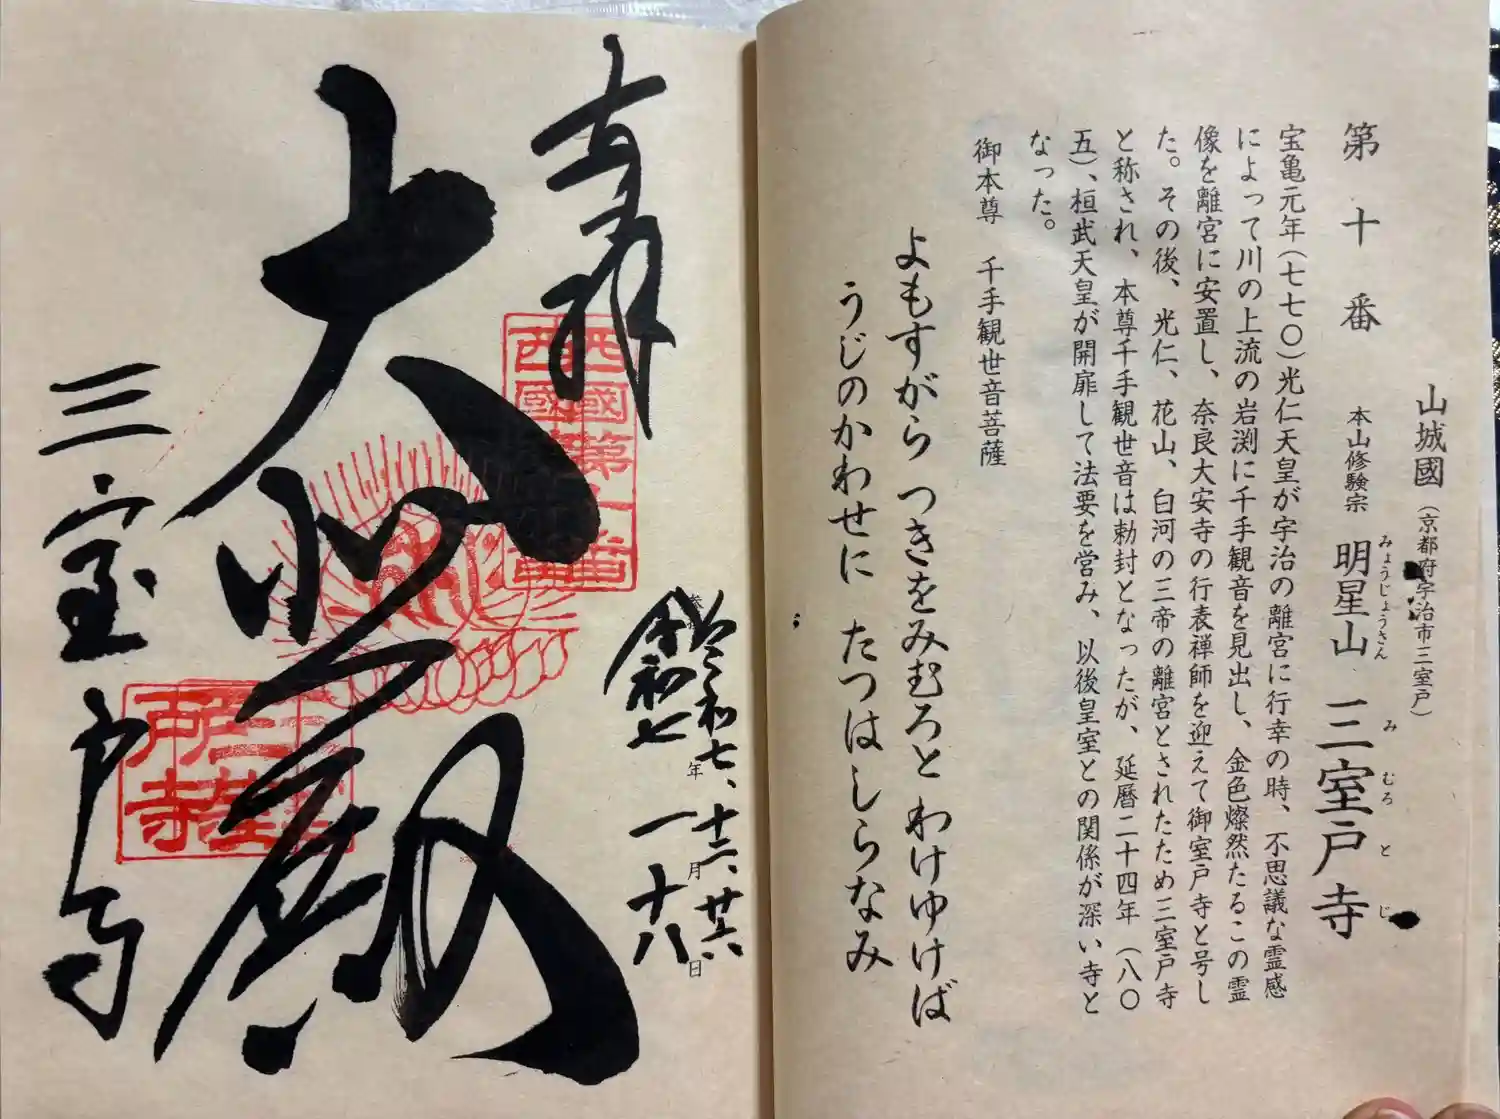 山城國(京都府宇治市三室戸)
第十番 本山修験宗 明星山 三室戸寺
みょうじょうさん みむろとじ
宝亀元年(七七〇)光仁天皇が宇治の離宮に行幸の時、不思議な霊感
によって川の上流の岩渕に千手観音を見出し、金色燦然たるこの霊
像を離宮に安置し、奈良大安寺の行表禅師を迎えて御室戸寺と号し
た。その後、光仁、花山、白河の三帝の離宮とされたため三室戸寺
と称され、本尊千手観世音は勅封となったが、延暦二十四年(八〇
五)、桓武天皇が開扉して法要を営み、以後皇室との関係が深い寺と
なった。
御本尊 千手観世音菩薩
よもすがら つきをみむろと わけゆけば
うじのかわせに たつはしらなみ
奉拝
令和七、十二、廿六
令和七年一月十八日
大悲殿
三室戸寺